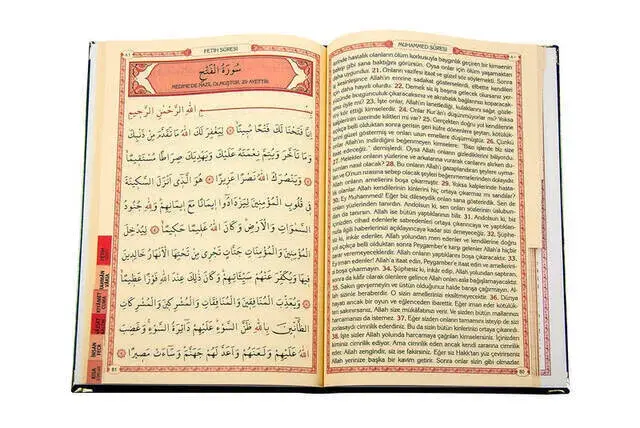 MUHAMMED SÛRESİ
sinde hastalık olanların ölüm korkusuyla baygınlık geçiren bir kimsenin
bakışı gibi sana baktığını görürsün. Oysa onlar için ölüm yaşamaktan
daha uygundur. 21. Onların vazifesi itaat ve güzel söz söylemektir. İş
ciddiye bindiği zaman Allah'a sadakat gösterselerdi, elbette kendileri
için daha hayırlı olurdu. 22. Demek siz iş başına gelecek olursanız yer-
yüzünde bozgunculuk çıkaracaksınız ve akrabalık bağlarınızı koparacak-
sınız öyle mi? 23. İşte onlar, Allah'ın lanetlediği, kulaklarını sağır, gözle-
rini kör ettiği kimselerdir. 24. Onlar Kur'ân'ı düşünmüyorlar mı? Yoksa
kalplerinin üzerinde kilitleri mi var? 25. Gerçekten doğru yol kendilerine
açıkça belli olduktan sonra gerisin geri küfre dönenlere şeytan, kötülük-
lerini güzel göstermiş ve onları uzun emellere düşürmüştür. 26. Çünkü
onlar Allah'ın indirdiğini beğenmeyen kimselere: "Bazı işlerde biz size
itaat edeceğiz." demişlerdi. Oysa Allah onların gizlediklerini biliyordu.
27. Melekler onların yüzlerine ve arkalarına vurarak canlarını alırken du-
rumları nasıl olacak? 28. Bu onların Allah'ı gazaplandıran şeylere uyma-
ları ve O'nun rızasına sebep olacak şeyleri beğenmemelerinden dolayıdır.
Allah onların amellerini boşa çıkarmıştır. 29. Yoksa kalplerinde hasta-
lık olanlar Allah kendilerinin kinlerini hiç ortaya çıkarmaz mı sandılar?
30. Ey Muhammed! Eğer biz dileseydik onları sana gösterirdik. Sen de
onları yüzlerinden tanırdın. Andolsun ki, sen onları sözlerinin üslubun-
dan da tanırsın. Allah ise bütün yaptıklarınızı bilir. 31. Andolsun ki, biz
içinizden cihad edenlerle sabredenleri ortaya çıkarıncaya ve yaptıkları-
nızla ilgili haberlerinizi açıklayıncaya kadar sizi deneyeceğiz. 32. Şüphe-
siz ki inkâr edenler, Allah yolundan men edenler ve kendilerine doğru
yol açıkça belli olduktan sonra Peygamber'e karşı gelenler Allah'a hiçbir
zarar veremeyeceklerdir. Allah onların yaptıklarını boşa çıkaracaktır. 33.
Ey iman edenler! Allah'a itaat edin, Peygamber'e itaat edin ve amellerini-
zi boşa çıkarmayın. 34. Şüphesiz ki, inkâr edip, Allah yolundan saptıran,
sonra da kâfir olarak ölenlere gelince Allah onları asla bağışlamayacaktır.
35. Sakın gevşemeyin ve üstün olduğunuz halde barışa çağırmayın. Al-
lah sizinle beraberdir. O sizin amellerinizi eksiltmeyecektir. 36. Dünya
hayatı ancak bir oyun ve eğlenceden ibarettir. Eğer iman edip kötülük-
ten sakınırsanız, Allah size mükâfatınızı verir. Ve sizden bütün mallarınızı
harcamanızı da istemez. 37. Eğer sizden onların tamamını isteyip de sizi
zorlasaydı cimrilik ederdiniz. Bu da sizin bütün kinlerinizi ortaya çıkarırdı.
38. İşte sizler Allah yolunda harcamaya çağrılan kimselersiniz. İçinizden
kiminiz cimrilik ediyor. Ama cimrilik eden ancak kendi zararına cimrilik
eder. Allah zengindir, siz ise fakirsiniz. Eğer siz Hakk'tan yüz çevirirseniz
Allah yerinize başka bir kavim getirir. Sonra onlar sizin gibi olmazlar.
80
FETİH SÛRESİ
سُورَةُ الْفَتْحِ
MEDİNE'DE NAZİL OLMUŞTUR, 29 AYETTİR.
بِسْمِ اللّٰهِ الرَّحْمٰنِ الرَّحِيمِ
اِنَّا فَتَحْنَا لَكَ فَتْحًا مُبِينًا ۝ لِيَغْفِرَ لَكَ اللّٰهُ مَا تَقَدَّمَ مِنْ ذَنْبِكَ
وَمَا تَاَخَّرَ وَيُتِمَّ نِعْمَتَهُ عَلَيْكَ وَيَهْدِيَكَ صِرَاطًا مُسْتَقِيمًا
۝ وَيَنْصُرَكَ اللّٰهُ نَصْرًا عَزِيزًا ۝ هُوَ الَّذِٓى اَنْزَلَ السَّكِينَةَ
فِى قُلُوبِ الْمُؤْمِنِينَ لِيَزْدَادُٓوا اِيمَانًا مَعَ اِيمَانِهِمْ وَلِلّٰهِ جُنُودُ
السَّمٰوَاتِ وَالْاَرْضِ وَكَانَ اللّٰهُ عَلِيمًا حَكِيمًا ۝ لِيُدْخِلَ
الْمُؤْمِنِينَ وَالْمُؤْمِنَاتِ جَنَّاتٍ تَجْرِى مِنْ تَحْتِهَا الْاَنْهَارُ خَالِدِينَ
فِيهَا وَيُكَفِّرَ عَنْهُمْ سَيِّـَٔاتِهِمْ وَكَانَ ذٰلِكَ عِنْدَ اللّٰهِ فَوْزًا عَظِيمًا
۝ وَيُعَذِّبَ الْمُنَافِقِينَ وَالْمُنَافِقَاتِ وَالْمُشْرِكِينَ وَالْمُشْرِكَاتِ
الظَّٓانِّينَ بِاللّٰهِ ظَنَّ السَّوْءِ عَلَيْهِمْ دَٓائِرَةُ السَّوْءِ وَغَضِبَ
اللّٰهُ عَلَيْهِمْ وَلَعَنَهُمْ وَاَعَدَّ لَهُمْ جَهَنَّمَ وَسَٓاءَتْ مَصِيرًا ۝
81
FETİH
RAHMÂN
VÂKIA
CUMA
İNSAN